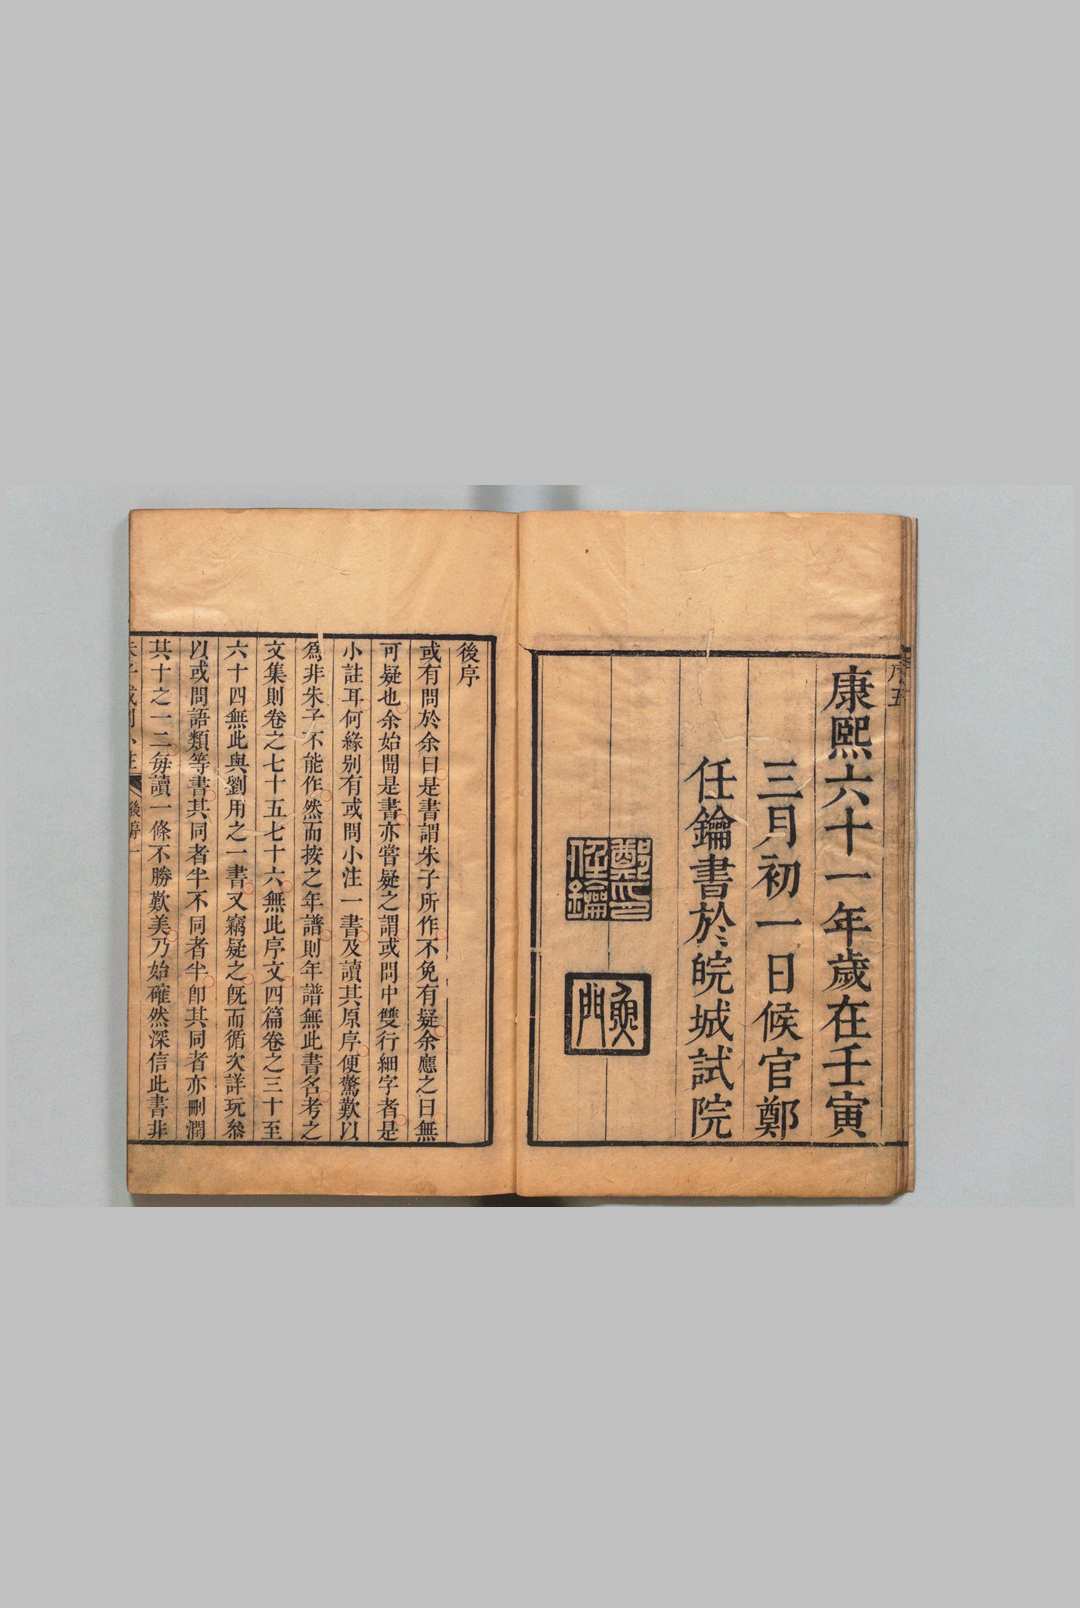 序五
康熙六十一年歲在壬寅
三月初一日候官鄭
任鑰書於皖城試院
鄭任鑰印
魚門
後序
或有問於余曰是書謂朱子所作不免有疑余應之曰無
可疑也余始聞是書亦嘗疑之謂或問中雙行細字者是
小註耳何緣別有或問小注一書及讀其原序便驚歎以
爲非朱子不能作然而按之年譜則年譜無此書名考之
文集則卷之七十五七十六無此序文四篇卷之三十至
六十四無此與劉用之一書又竊疑之旣而循次詳玩叅
以或問語類等書其同者半不同者半卽其同者亦刪潤
其十之一二每讀一條不勝歎美乃始確然深信此書非
朱子或問小注
後序一